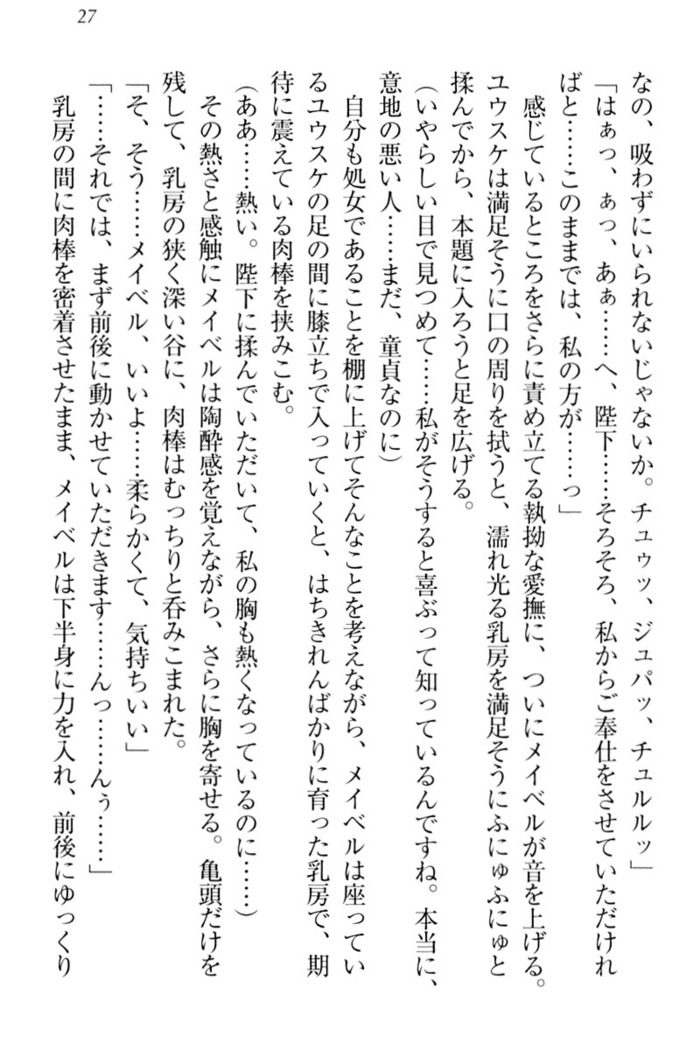 27
なの、吸わずにいられないじゃないか。チュゥッ、ジュパッ、チュルルッ」
「はぁっ、ぁっ、あぁ……へ、陛下……そろそろ、私からご奉仕をさせていただけれ
ばと……このままでは、私の方が……っ」
感じているところをさらに責め立てる執拗な愛撫に、ついにメイベルが音を上げる。
ユウスケは満足そうに口の周りを拭うと、濡れ光る乳房を満足そうにふにゅふにゅと
揉んでから、本題に入ろうと足を広げる。
（いやらしい目で見つめて……私がそうすると喜ぶって知っているんですね。本当に、
意地の悪い人……まだ、童貞なのに）
自分も処女であることを棚に上げてそんなことを考えながら、メイベルは座ってい
るユウスケの足の間に膝立ちで入っていくと、はちきれんばかりに育った乳房で、期
待に震えている肉棒を挟みこむ。
（ああ……熱い。陛下に揉んでいただいて、私の胸も熱くなっているのに……）
その熱さと感触にメイベルは陶酔感を覚えながら、さらに胸を寄せる。亀頭だけを
残して、乳房の狭く深い谷に、肉棒はむっちりと呑みこまれた。
「そ、そう……メイベル、いいよ……柔らかくて、気持ちいい」
「……それでは、まず前後に動かせていただきます……んっ……んぅ……」
乳房の間に肉棒を密着させたまま、メイベルは下半身に力を入れ、前後にゆっくり